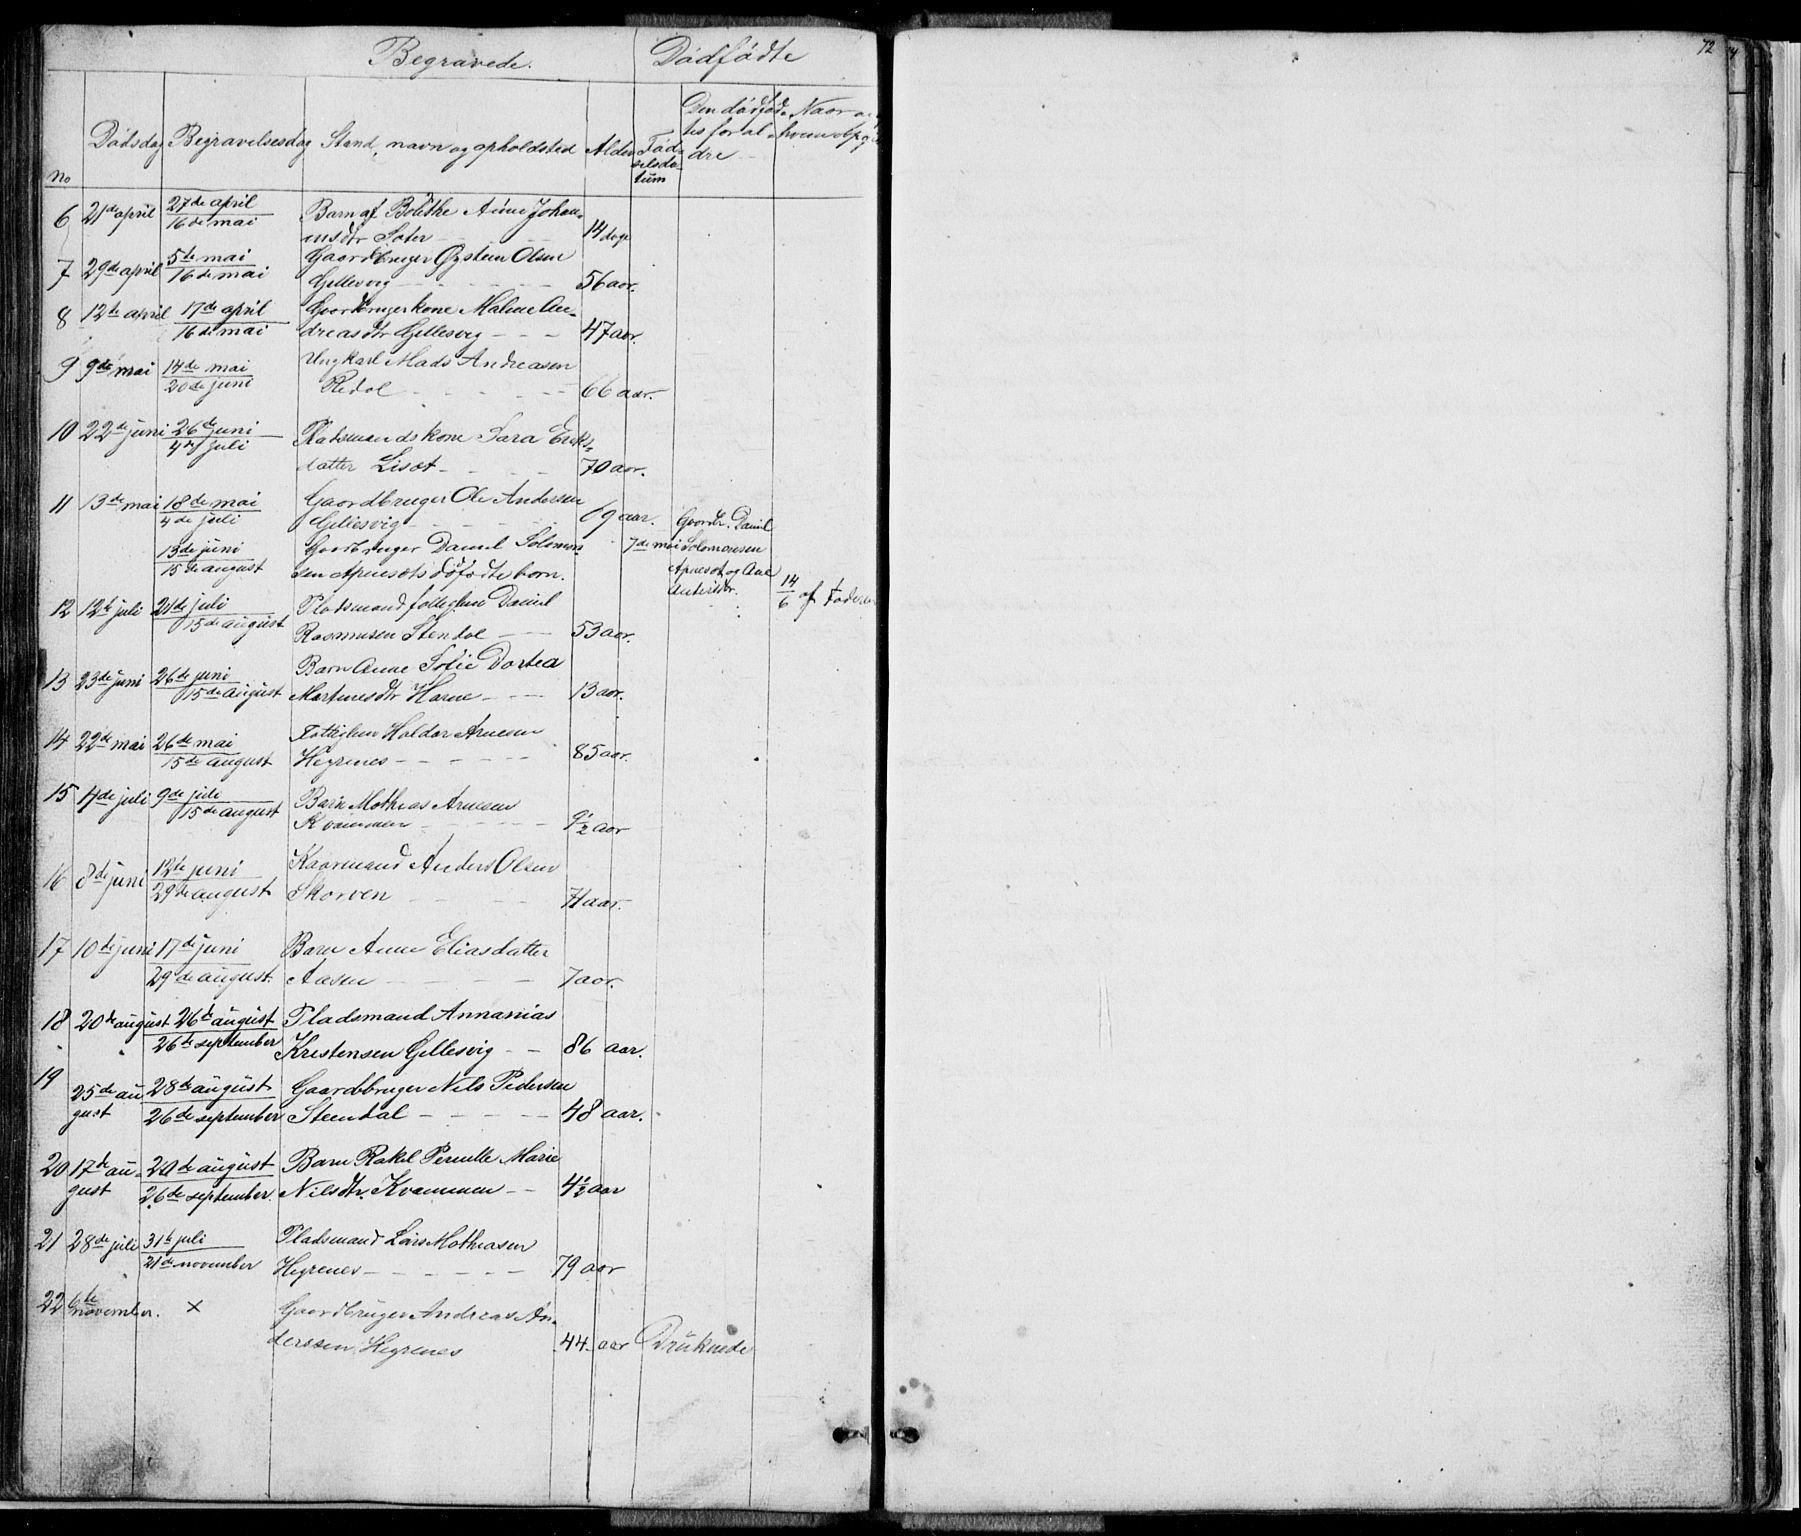 72
Begravede.
Dødfødte
No
Dødsdag
Begravelsesdag
Stand, navn og opholdsted
Alder
Fød-
selsda-
tum
Den dødfød-
tes foræl-
dre
Naar og
hvem opgi
6 21de april 27de april Barn af Bolethe Anne Johan-
16de mai nsdtr Sæter - - - 14 dage
7 29de april 5te mai Gaardbruger Øystein Olsen
16de mai Gillesvig - - - - - 56 aar.
8 12te april 17de april Gaardbrugerkone Malene An-
16de mai dreasdtr Gillesvig - - - 47 aar.
9 9de mai 14de mai Ungkarl Mads Andreasen
20de juni Redal - - - - - 66 aar.
10 22de juni 26de juni Pladsmandskone Sara Eriks-
4de juli datter Liset - - - - 70 aar.
11 13de mai 18de mai Gaardbruger Ole Andersen
4de juli Gillesvig - - - - 69 aar.
13de juni Gaardbruger Daniel Solomon-
15de august sen Apnesets døfødte barn.
7de mai
Gaardb. Daniel
Solomonsen
Apneset og Ane
Andersdtr.
14/6 af Faderen
12 12te juli 21de juli Pladsmand fattiglem Daniel
15de august Rasmusen Stendal - - 53 aar.
13 23de juni 26de juni Barn Anne Sofie Dortea
15de august Martinesdtr Harne - - - 13 aar.
14 22de mai 26de mai Fattiglem Haldor Arnesen
15de august Hegrenes - - - - - - 85 aar.
15 4de juli 9de juli Barn Mathias Arnesen
15de august Kvammen - - - - - 9½ aar
16 8de juni 12te juni Kaarmand Anders Olsen
29de august Skorven - - - - 71 aar.
17 10de juni 17de juni Barn Anne Eliasdatter
29de august. Aasen - - - - - 7 aar.
18 20de august 26de august Pladsmand Annanias
26de september Kristensen Gillesvig - - 86 aar.
19 25de au 28de august Gaardbruger Nils Pedersen
gust 26de september Steendal - - - - 48 aar.
20 17de au- 20de august Barn Rakel Pernille Marie
gust 26de september Nilsdtr. Kvammen - - 4½ aar
21 28de juli 31te juli Pladsmand Lars Mathiasen
21de november Hegrenes - - - - - - 79 aar
22 6te november. × Gaardbruger Andreas An-
derssen Hegrenes 44 aar Druknede